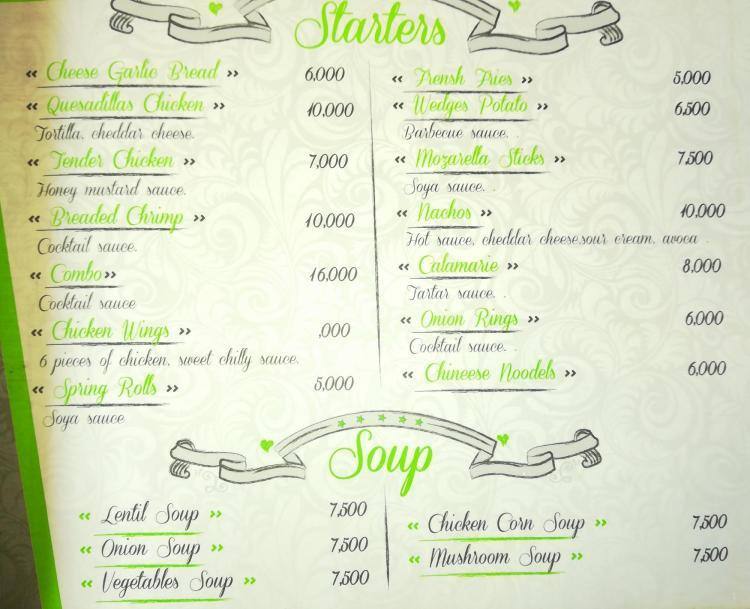 Starters
« Cheese Garlic Bread » 6,000
« Quesadillas Chicken » 10,000
Tortilla, cheddar cheese.
« Tender Chicken » 7,000
Honey mustard sauce.
« Breaded Chrimp » 10,000
Cocktail sauce.
« Combo » 16,000
Cocktail sauce
« Chicken Wings » ,000
6 pieces of chicken, sweet chilly sauce.
« Spring Rolls » 5,000
Soya sauce
« Frensh Fries » 5,000
« Wedges Potato » 6,500
Barbecue sauce. .
« Mozarella Sticks » 7,500
Soya sauce. .
« Nachos » 10,000
Hot sauce, cheddar cheese,sour cream, avoca .
« Calamarie » 8,000
Tartar sauce. .
« Onion Rings » 6,000
Cocktail sauce. .
« Chineese Noodels » 6,000
Soup
« Lentil Soup » 7,500
« Onion Soup » 7,500
« Vegetables Soup » 7,500
« Chicken Corn Soup » 7,500
« Mushroom Soup » 7,500